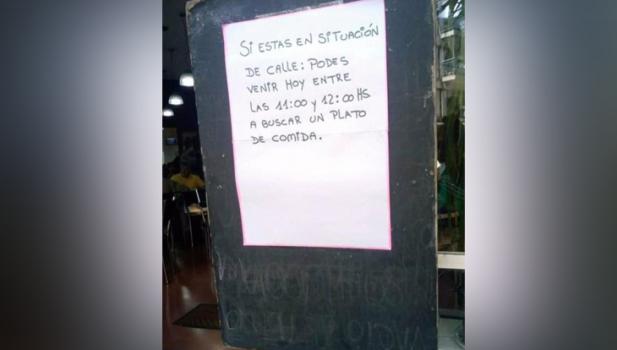 SI ESTAS EN SITUACIÓN
DE CALLE: PODES
VENIR HOY ENTRE
LAS 11:00 Y 12:00 HS.
A BUSCAR UN PLATO
DE COMIDA.